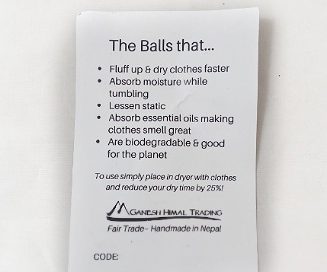 The Balls that...
• Fluff up & dry clothes faster
• Absorb moisture while
tumbling
• Lessen static
• Absorb essential oils making
clothes smell great
• Are biodegradable & good
for the planet
To use simply place in dryer with clothes
and reduce your dry time by 25%!
GANESH HIMAL TRADING
Fair Trade- Handmade in Nepal
CODE: